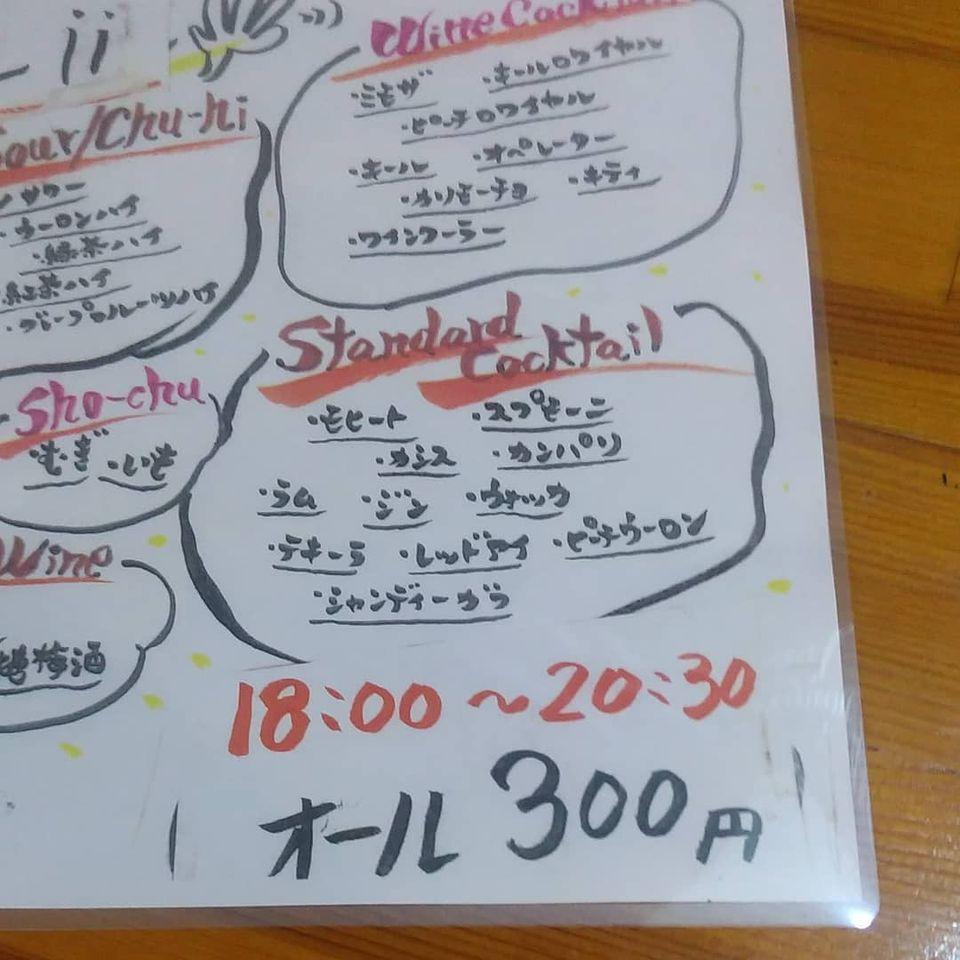 ii
Wine Cocktail
・ミモザ ・キールロワイヤル
・ピーチロワイヤル
・キール ・オペレーター
・カリモーチョ ・キティ
・ワインクーラー
Sour/Chu-hi
サワー
・ウーロンハイ
・緑茶ハイ
・紅茶ハイ
・グレープフルーツハイ
Sho-chu
・むぎ ・いも
Wine
梅酒
Standard
Cocktail
・モヒート ・スプモーニ
・カシス ・カンパリ
・ラム ・ジン ・ウォッカ
・テキーラ ・レッドアイ ・ピーチウーロン
・シャンディーガラ
18:00～20:30
オール 300円